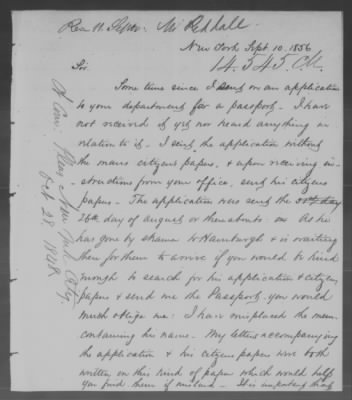 Rcd 11 Sept. Mr Redhall.
New York Sept 10. 1856
14.545. C.M.
Sir.
Some time since I send on an application
to your department for a passport. I have
not received it yet nor heard anything in
relation to it. I send the application without
the mans citizens papers, & upon receiving in-
structions from your office, send his citizens
papers - The application was send the
26th day of August or thereabouts. As he
has gone by steamer to Hamburgh & is waiting
there for them to arrive if you would be kind
enough to search for his application & citizens
papers & send me the Passport you would
much oblige me: I have misplaced the mem.
containing his name. My letters accompanying
the application & his citizens papers were both
written on this kind of paper which would help
you find them if mislaid - It is important that
Ct Com. Pleas New York City.
Feb 28 1848